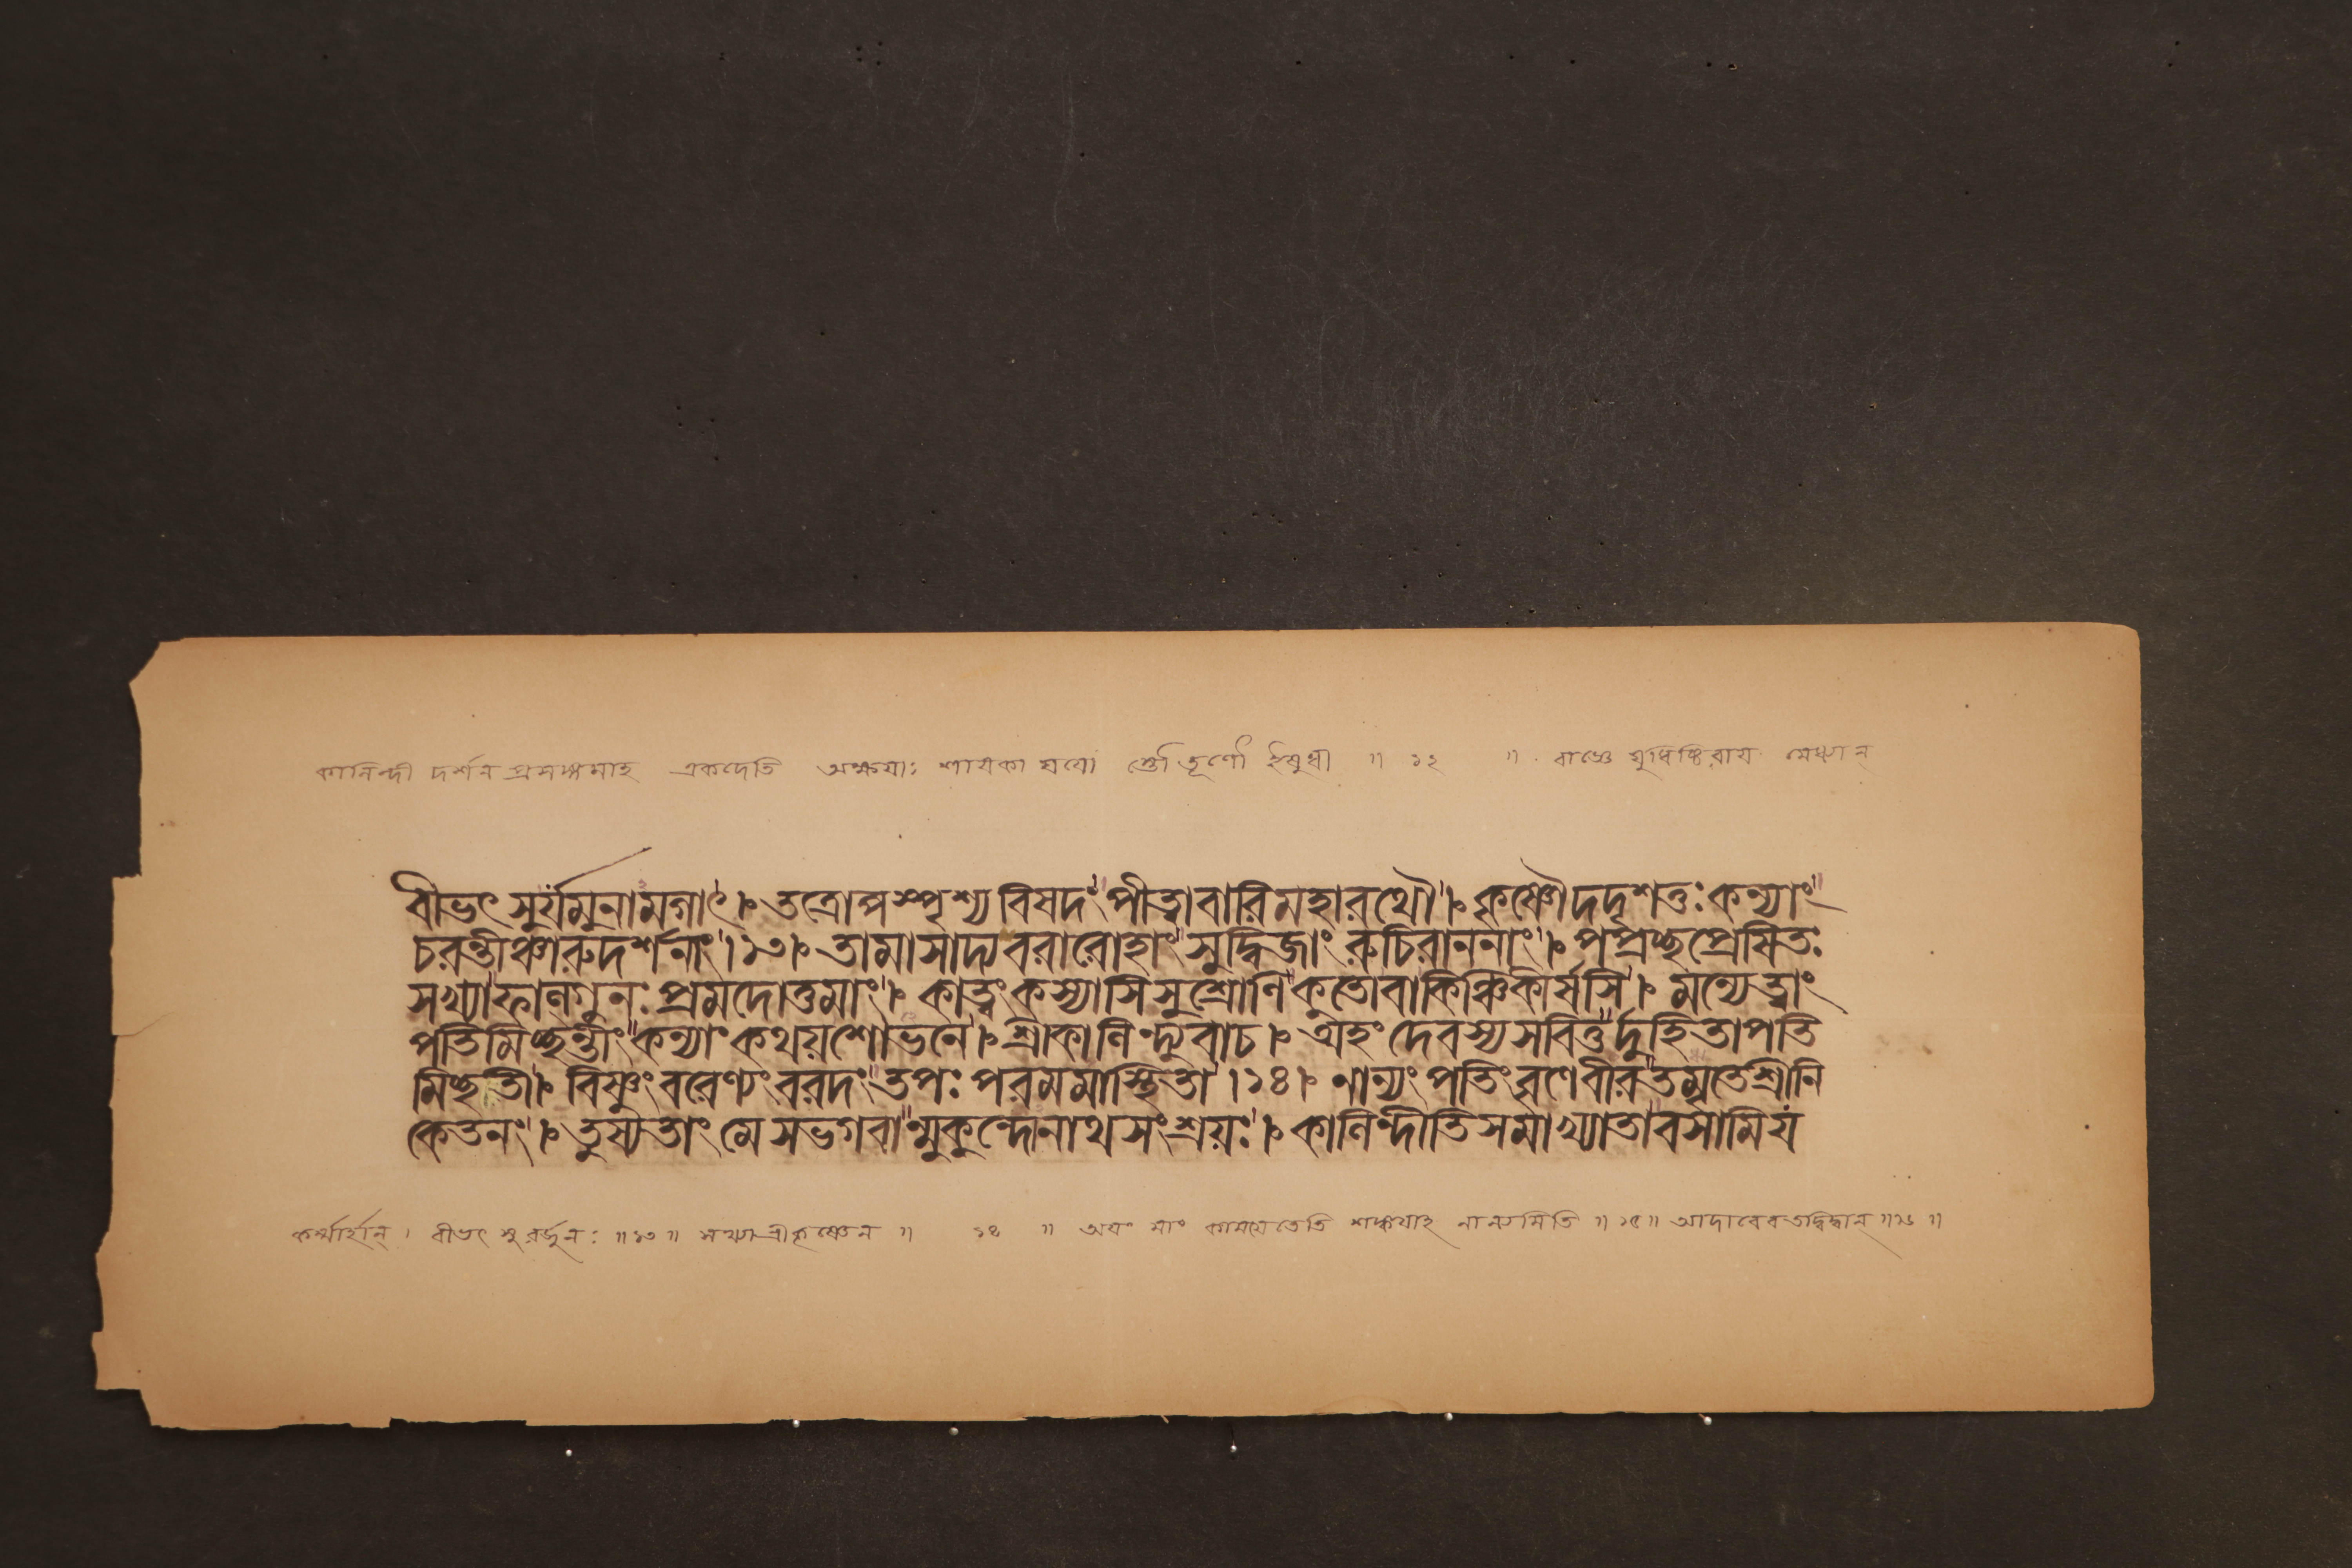 কালিন্দী দর্শন প্রসঙ্গমাহ একদেতি অক্ষয়াঃ শায়কা যয়ো স্তৌ তূণৌ ইষুধী ॥ ১২ ॥ রাজ্ঞে যুধিষ্ঠিরায় মেধ্যান্
বীভৎ সুর্যমুনামগাৎ । তত্রোপস্পৃশ্য বিষদং পীত্বাবারিমহারথৌ । কৃষ্ণৌদদৃশতুঃ কন্যাং
চরন্তীঞ্চারুদর্শনাং । ১৩ । তামাসাদ্য বরারোহাং সুদ্বিজাং রুচিরাননাং । পপ্রচ্ছপ্রেষিতঃ
সখ্যাফাল্গুনঃ প্রমদোত্তমাং । কাত্বং কস্যাসি সুশ্রোণি কুতোবাকিঞ্চিকীর্ষসি । মন্যে ত্বাং
পতিমিচ্ছন্তীং কন্যাং কথয়শোভনে । শ্রীকালিন্দ্যুবাচ । অহং দেবস্য সবিতুর্দুহিতাপতি
মিচ্ছতী । বিষ্ণুং বরেণ্যং বরদং তপঃ পরমমাস্থিতা । ১৪ । নান্যং পতিং বৃণেবীর তমৃতেশ্রীনি
কেতনং । তুষ্যতাং মে সভগবান্মুকুন্দোনাথসংশ্রয়ঃ । কালিন্দীতিসমাখ্যাতাবসামিযং
কর্ম্মার্হান্ । বীভৎ সু রর্জুনঃ ॥ ১৩ ॥ সখ্যা শ্রীকৃষ্ণেন ॥ ১৪ ॥ অয়ং মাং কাময়েতেতি শঙ্কয়াহ নান্যমিতি ॥ ১৫ ॥ আদাবেবতদ্বিদ্বান্ ॥ ১৬ ॥